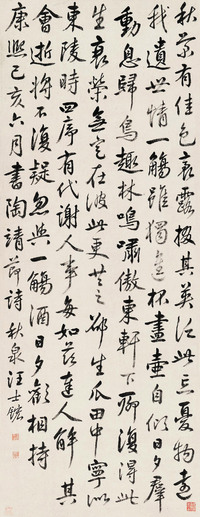 秋菊有佳色裛露掇其英泛此忘憂物遠
我遺世情一觴雖獨進杯盡壺自傾日夕羣
動息歸鳥趣林鳴嘯傲東軒下聊復得此
生衰榮無定在彼此更共之邵生瓜田中寧似
東陵時四序有代謝人事每如茲達人解其
會逝將不復疑忽與一觴酒日夕歡相持
康熙己亥六月書陶靖節詩 秋泉汪士鋐